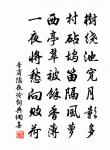 樹繞池寬月影多
村砧塢笛隔風蘿
西亭翠被餘香薄
一夜將愁向敗荷
李商隱夜冷詞典網書